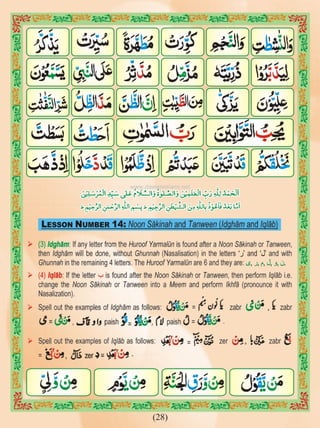 وَالنّٰشِطٰتِ وَالنَّجْمِ كُوِّرَتْ مُطَهَّرَةً يُسِّرَتْ يَذَّكَّرُ
لِيَدَّبَّرُوْٓا ذُرِّيَّتَهٗ مُزَّمِّلُ مُدَّثِّرُ عَلَى النَّبِيِّ
عِلِّيُّوْنَ يَزَّكّٰى مِنَ الطَّيِّبٰتِ اِنَّ الظَّنَّ مُدَّ الظِّلُّ شَرِّ النَّفّٰثٰتِ
يُحِبُّ التَّوَّابِيْنَ رَبُّ السَّمٰوٰتِ اَحَطْتُّ بَسَطْتَّ
نَخْلُقْكُّمْ قَدْ تَّبَيَّنَ عَبَدْتُّمْ اِذْ ظَّلَمُوْا قَدْ دَّخَلُوْا اِذْ ذَّهَبَ
اَلْحَمْدُ لِلّٰهِ رَبِّ الْعٰلَمِيْنَ وَالصَّلٰوةُ وَالسَّلَامُ عَلٰى سَيِّدِ الْمُرْسَلِيْنَ
اَمَّا بَعْدُ فَاَعُوْذُ بِاللّٰهِ مِنَ الشَّيْطٰنِ الرَّجِيْمِ بِسْمِ اللّٰهِ الرَّحْمٰنِ الرَّحِيْمِ
LESSON NUMBER 14: Noon Sākinah and Tanween (Idghām and Iqlāb)
(3) Idghām: If any letter from the Huroof Yarmalūn is found after a Noon Sākinah or Tanween,
then Idghām will be done, without Ghunnah (Nasalisation) in the letters 'ر' and 'ل' and with
Ghunnah in the remaining 4 letters. The Huroof Yarmalūn are 6 and they are: ي، ر، م، ل، و، ن
(4) Iqlāb: If the letter ب is found after the Noon Sākinah or Tanween, then perform Iqlāb i.e.
change the Noon Sākinah or Tanween into a Meem and perform Ikhfā (pronounce it with
Nasalization).
Spell out the examples of Idghām as follows:
Spell out the examples of Iqlāb as follows:
مَنْ يَّقُوْلُ مِنْ وَّرَقِ الْجَنَّةِ مِنْ يَّوْمٍ مِنْ وَّلِيٍّ
(28)